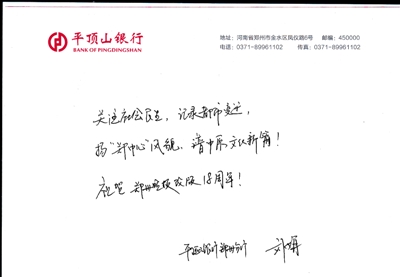 平顶山银行
BANK OF PINGDINGSHAN
地址：河南省郑州市金水区凤仪路6号 邮编：450000
电话：0371-89961102 传真：0371-89961102
关注社会民生，记录都市变迁，
扬“郑中心”风貌，谱中原文化新篇！
祝贺郑州晚报改版18周年！
平顶山银行郑州分行